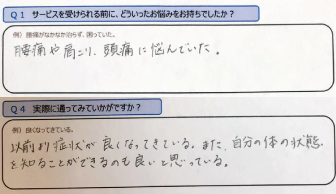 Q1 サービスを受けられる前に、どういったお悩みをお持ちでしたか？
例）腰痛がなかなか治らず、困っていた。
腰痛や肩こり、頭痛に悩んでいた。
Q4 実際に通ってみていかがですか？
例）良くなってきている。
以前より症状が良くなってきている。また、自分の体の状態
を知ることができるのも良いと思っている。